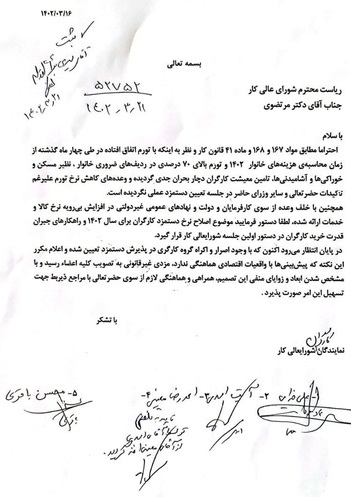 ۱۴۰۲/۰۳/۱۶
ثبت
۱۴۰۲،۳،۲۱
بسمه تعالی
۵۲۷۵۲
۱۴۰۲،۳،۲۱
ریاست محترم شورای عالی کار
جناب آقای دکتر مرتضوی
با سلام
احتراما مطابق مواد ۱۶۷ و ۱۶۸ و ماده ۴۱ قانون کار و نظر به اینکه با تورم اتفاق افتاده در طی چهار ماه گذشته از
زمان محاسبه‌ی هزینه‌های خانوار ۱۴۰۲ و تورم بالای ۷۰ درصدی در ردیف‌های ضروری خانوار، نظیر مسکن و
خوراکی‌ها و آشامیدنی‌ها، تامین معیشت کارگران دچار بحران جدی گردیده و وعده‌های کاهش نرخ تورم علیرغم
تاکیدات حضرتعالی و سایر وزرای حاضر در جلسه تعیین دستمزد عملی نگردیده است.
همچنین با خلف وعده از سوی کارفرمایان و دولت و نهادهای عمومی غیردولتی در افزایش بی‌رویه نرخ کالا و
خدمات ارائه شده، لطفا دستور فرمایید موضوع اصلاح نرخ دستمزد کارگران برای سال ۱۴۰۲ و راهکارهای جبران
قدرت خرید کارگران در دستور اولین جلسه شورایعالی کار قرار گیرد.
در پایان انتظار می‌رود اکنون که با وجود اصرار و اکراه گروه کارگری در پذیرش دستمزد تعیین شده و اعلام مکرر
این نکته که پیش‌بینی‌ها با واقعیات اقتصادی هماهنگی ندارد، مزدی غیرقانونی به تصویب کلیه اعضاء رسید و با
مشخص شدن ابعاد و زوایای منفی این تصمیم، همراهی و هماهنگی لازم از سوی حضرتعالی با مراجع ذیربط جهت
تسهیل این امر صورت پذیرد.
با تشکر
نمایندگان شورایعالی کار
۱- علی خدایی ۲- آیت اسدی ۳- احمدرضا معینی ۴-
۵- محسن باقری